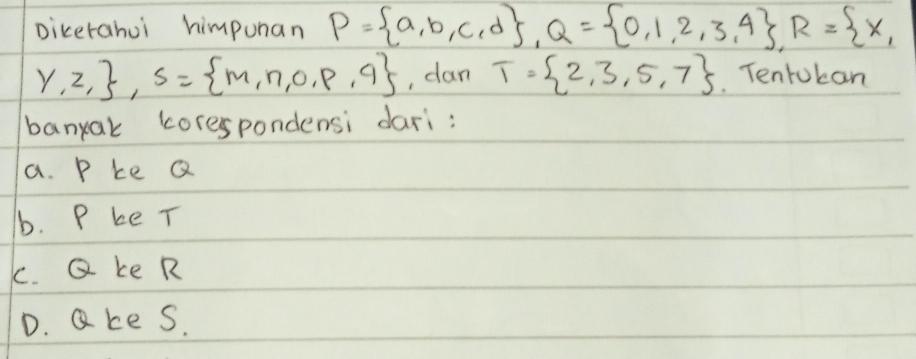 Diketahui himpunan P = {a, b, c, d}, Q = {0, 1, 2, 3, 4}, R = {x,
y, z, }, S = {m, n, o, p, q}, dan T = {2, 3, 5, 7}. Tentukan
banyak korespondensi dari :
a. P ke Q
b. P ke T
c. Q ke R
D. Q ke S.